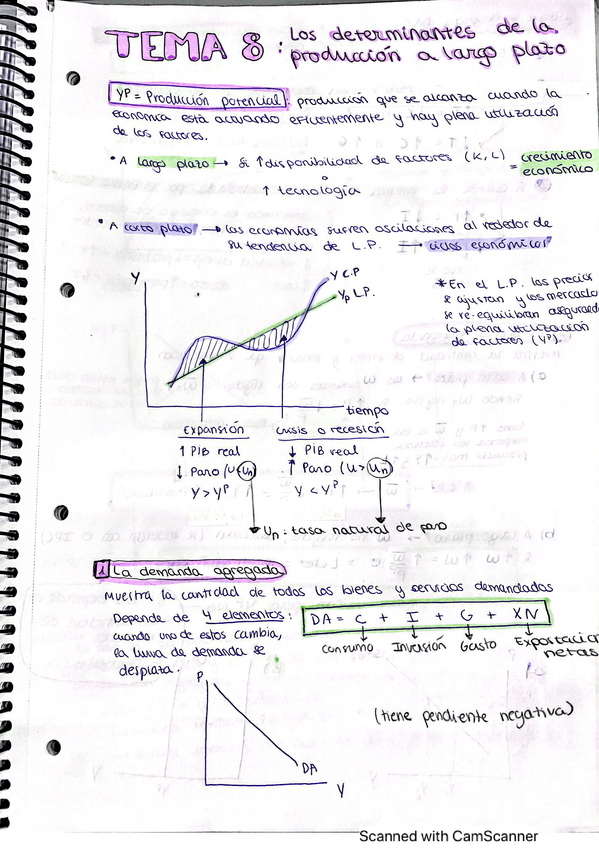 TEMA 8: Los determinantes de la
producción a largo plazo
YP = Producción potencial: producción que se alcanza cuando la
economía está actuando eficientemente y hay plena utilización
de los factores.
• A largo plazo → Si ↑ disponibilidad de factores (K, L) = crecimiento
económico
o
↑ tecnología
• A corto plazo → las economías sufren oscilaciones al rededor de
su tendencia de L.P. ciclos económicos
Y
Y C.P
Yp L.P.
tiempo
* En el L.P. los precios
se ajustan y los mercado
se re-equilibran asegurando
la plena utilización
de factores (YP).
Expansión
↑ PIB real
↓ Paro (u<un)
Y > YP
Crisis o recesión
↓ PIB real
↑ Paro (u>un)
Y < YP
Un: tasa natural de paro
1 La demanda agregada
Muestra la cantidad de todos los bienes y servicios demandados
Depende de 4 elementos:
cuando uno de estos cambia,
la curva de demanda se
desplaza.
DA = C + I + G + XN
consumo Inversión Gasto Exportacion
netas
P
DA
Y
(tiene pendiente negativa)
Scanned with CamScanner